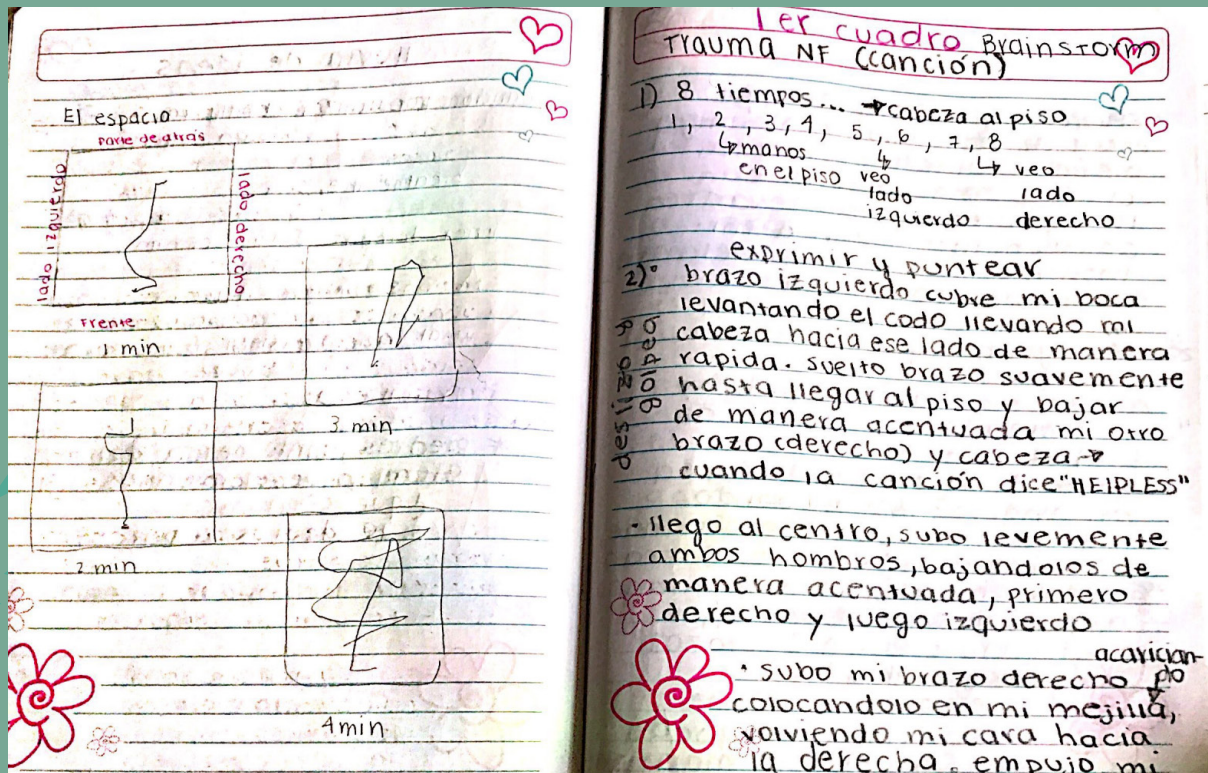 El espacio
parte de atrás
lado izquierdo
lado derecho
Frente
1 min
2 min
3 min
4 min
1er cuadro Brainstorm
Trauma NF (canción)
1) 8 tiempos... → cabeza al piso
1, 2, 3, 4, 5, 6, 7, 8
↳ manos ↳ ↳ veo
en el piso veo lado
lado derecho
izquierdo
exprimir y puntear
deslizo y
golpeo
2) • brazo izquierdo cubre mi boca
levantando el codo llevando mi
cabeza hacia ese lado de manera
rapida. suelto brazo suavemente
hasta llegar al piso y bajar
de manera acentuada mi otro
brazo (derecho) y cabeza →
cuando la canción dice "HElPLESS"
• llego al centro, subo levemente
ambos hombros, bajandolos de
manera acentuada, primero
derecho y luego izquierdo
acarician-
• subo mi brazo derecho do
colocandolo en mi mejilla,
volviendo mi cara hacia
la derecha. empujo mi